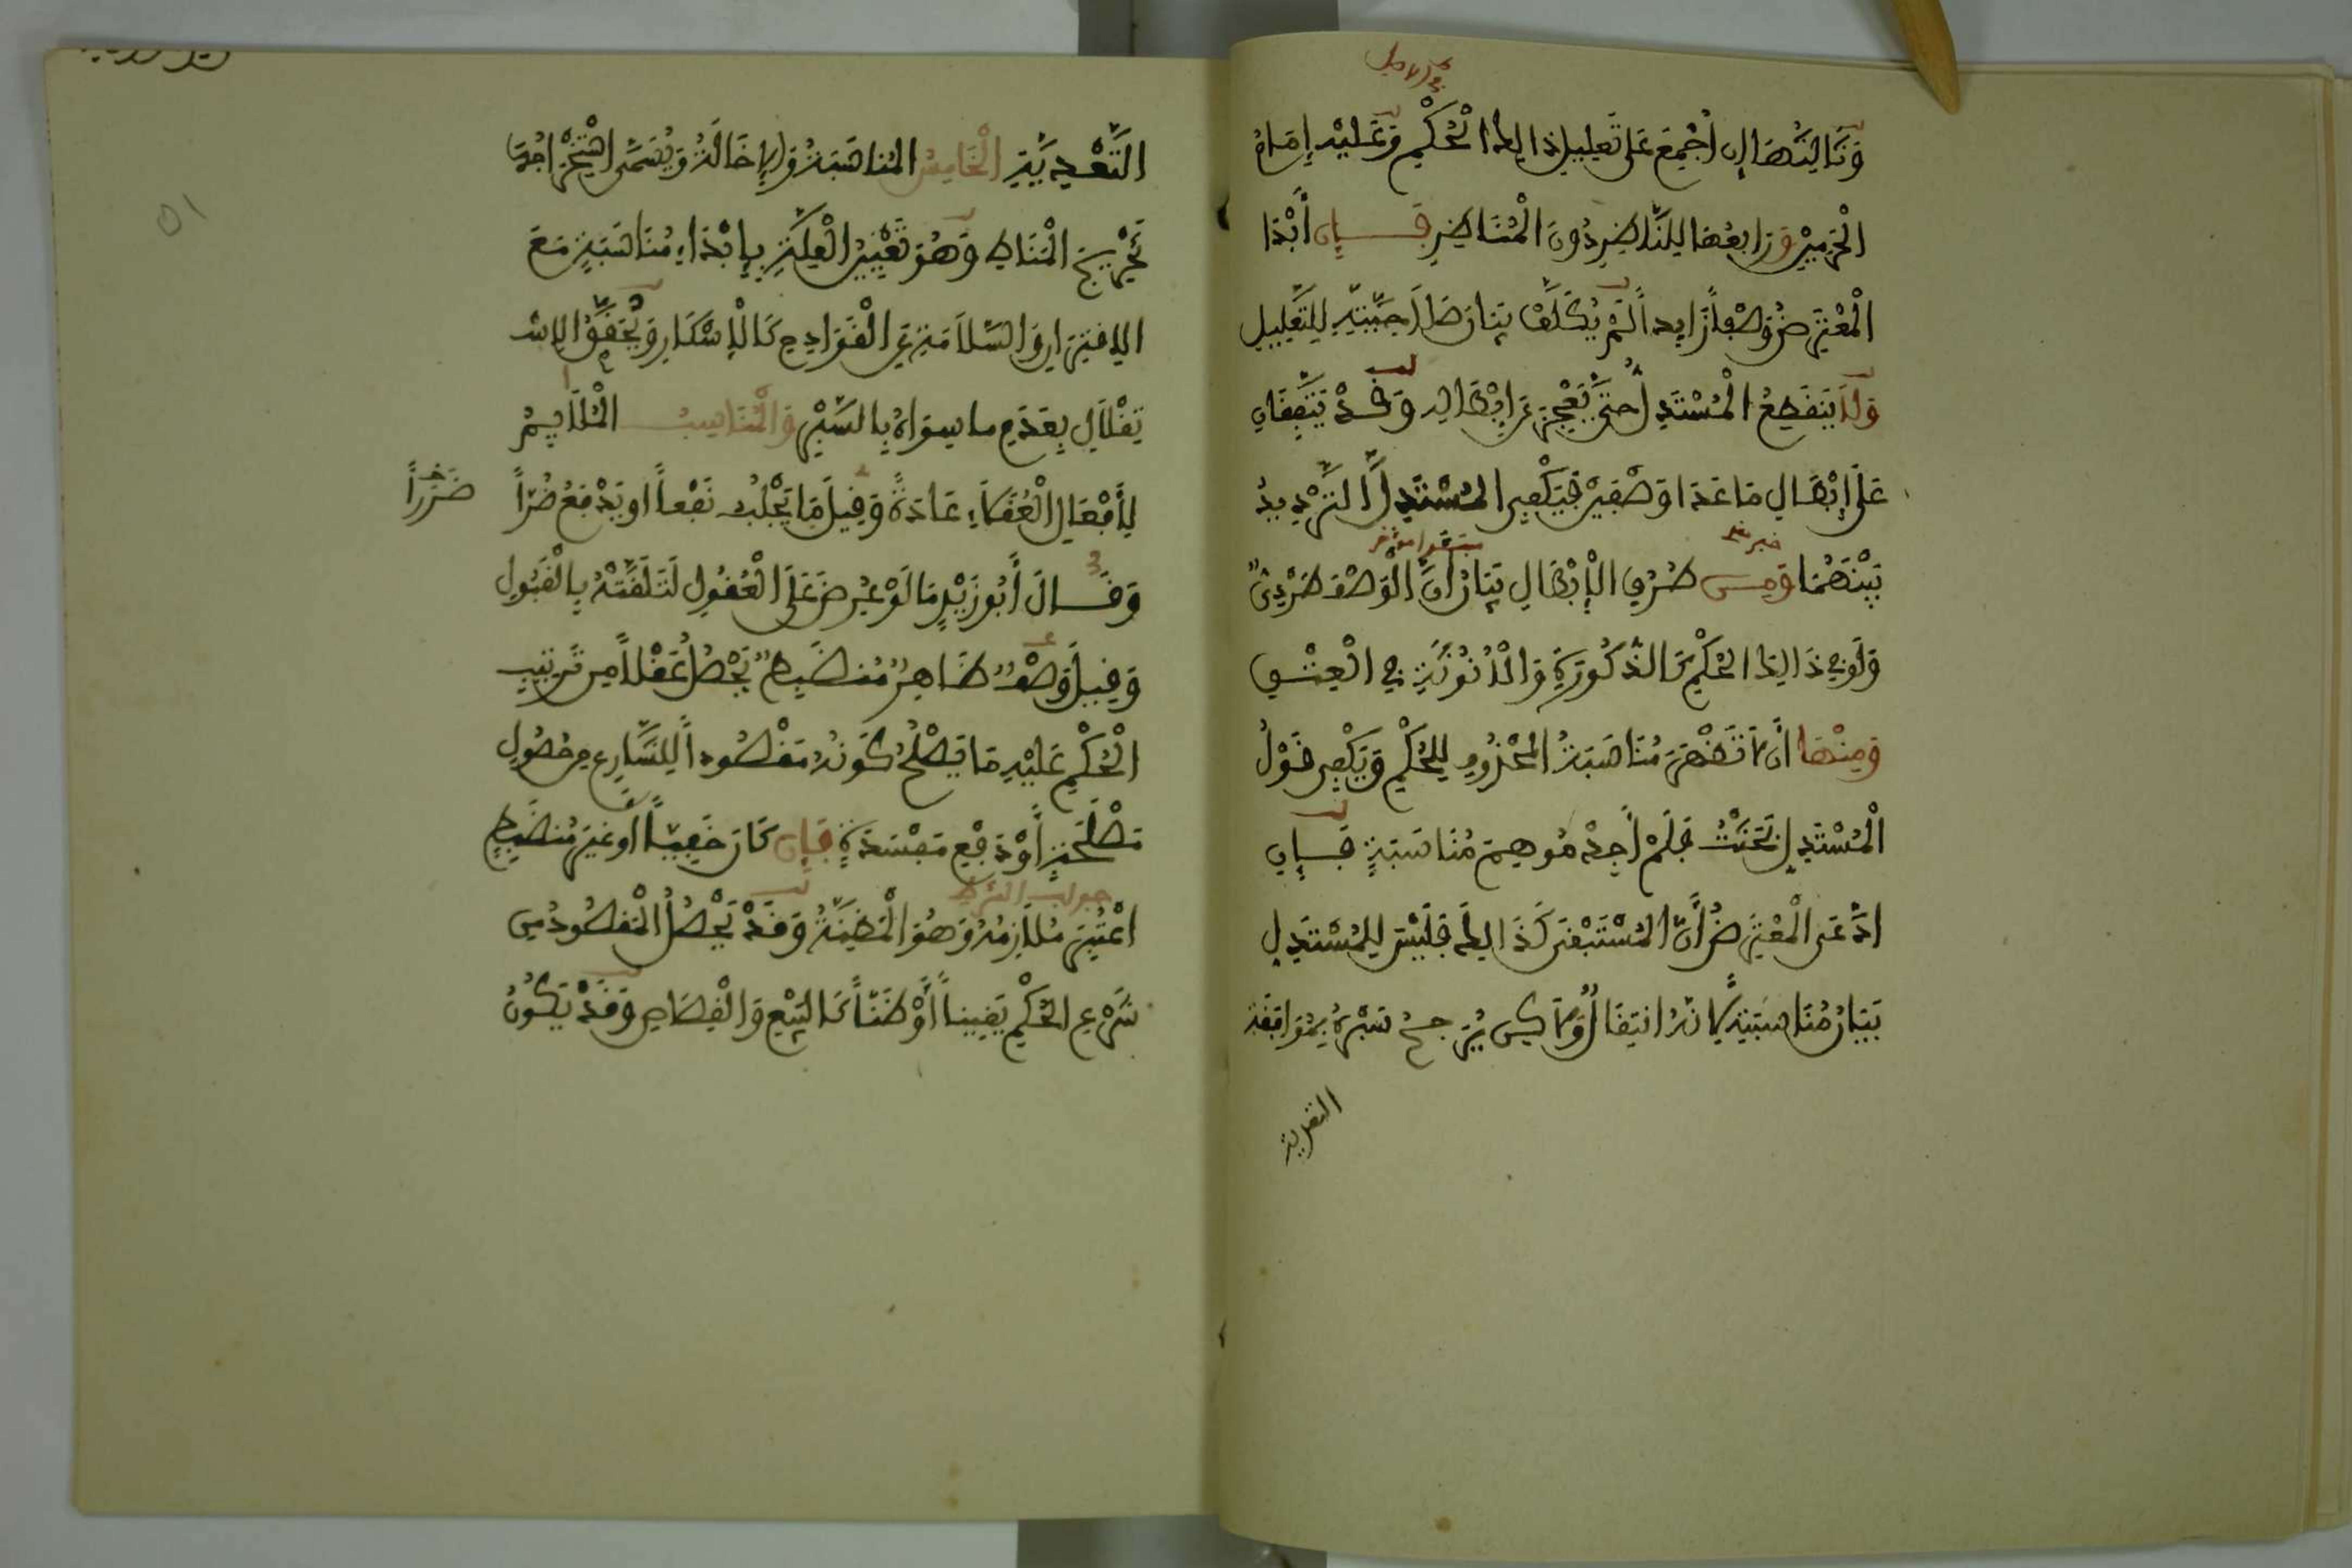 في الاصل
وَثَالِثُهَا إِن أُجْمِعَ عَلَى تَعْلِيلِ ذَالِكَ الْحُكْمِ وَعَلَيْهِ إِمَامُ
الْحَرَمَيْنِ وَرَابِعُهَا لِلنَّاظِرِ دُونَ الْمُنَاظِرِ فَإِن أَبْدَا
الْمُعْتَرِضُ وَصْفاً زَايِداً لَمْ يُكَلَّفْ بَيَانَ صَلَاحِيَّتِهِ لِلتَّعْلِيلِ
وَلَا يَنقَطِعُ الْمُسْتَدِلُّ حَتَّى يَعْجِزَ عَن إِبْطَالِهِ وَقَدْ يَتَّفِقَانِ
عَلَى إِبْطَالِ مَا عَدَا وَصْفَيْنِ فَيَكْفِي الْمُسْتَدِلَّ التَّرْدِيدُ
خبر
بَيْنَهُمَا وَمِن طُرُقِ الْإِبْطَالِ بَيَانُ أَنَّ الْوَصْفَ طَرْدِيٌّ
وَلَوْ فِي ذَالِكَ الْحُكْمِ كَالذُّكُورَةِ وَالْأُنُوثَةِ فِي الْعِتْقِ
وَمِنْهَا أَن لَا تَظْهَرَ مُنَاسَبَةُ الْمَحْذُوفِ لِلْحُكْمِ وَيَكْفِي قَوْلُ
الْمُسْتَدِلِّ بَحَثْتُ فَلَمْ أَجِدْ مُوهِمَ مُنَاسَبَةٍ فَإِنِ
ادَّعَى الْمُعْتَرِضُ أَنَّ الْمُسْتَبْقَى كَذَالِكَ فَلَيْسَ لِلْمُسْتَدِلِّ
بَيَانُ مُنَاسَبَتِهِ لِأَنَّهُ انتِقَالٌ وَلَاكِن يُرَجِّحُ سَبْرَهُ بِمُوَافَقَةِ
التعدية
التَّعْدِيَةِ الْخَامِسُ الْمُنَاسَبَةُ وَالْإِخَالَةُ وَيُسَمَّى اسْتِخْرَاجُهَا
تَخْرِيجَ الْمَنَاطِ وَهُوَ تَعْيِينُ الْعِلَّةِ بِإِبْدَاءِ مُنَاسَبَةٍ مَعَ
الِاقْتِرَانِ وَالسَّلَامَةِ عَنِ الْقَوَادِحِ كَالْإِسْكَارِ وَيُحَقَّقُ الِاسْـ
ـتِقْلَالُ بِعَدَمِ مَا سِوَاهُ بِالسَّبْرِ وَالْمُنَاسِبُ الْمُلَايِمُ
لِأَفْعَالِ الْعُقَلَاءِ عَادَةً وَقِيلَ مَا يَجْلُبُ نَفْعاً أَو يَدْفَعُ ضُرّاً
ضَرَراً
وَقَالَ أَبُو زَيْدٍ مَا لَوْ عُرِضَ عَلَى الْعُقُولِ لَتَلَقَّتْهُ بِالْقَبُولِ
وَقِيلَ وَصْفٌ ظَاهِرٌ مُنضَبِطٌ يَحْصُلُ عَقْلاً مِن تَرْتِيبِ
الْحُكْمِ عَلَيْهِ مَا يَصْلُحُ كَوْنُهُ مَقْصُوداً لِلشَّارِعِ مِن حُصُولِ
مَصْلَحَةٍ أَوْ دَفْعِ مَفْسَدَةٍ فَإِن كَانَ خَفِيّاً أَوْ غَيْرَ مُنضَبِطٍ
جواب الشرط
اعْتُبِرَ مُلَازِمُهُ وَهُوَ الْمَظِنَّةُ وَقَدْ يَحْصُلُ الْمَقْصُودُ مِن
شَرْعِ الْحُكْمِ يَقِيناً أَوْ ظَنّاً كَالْبَيْعِ وَالْقِصَاصِ وَقَدْ يَكُونُ